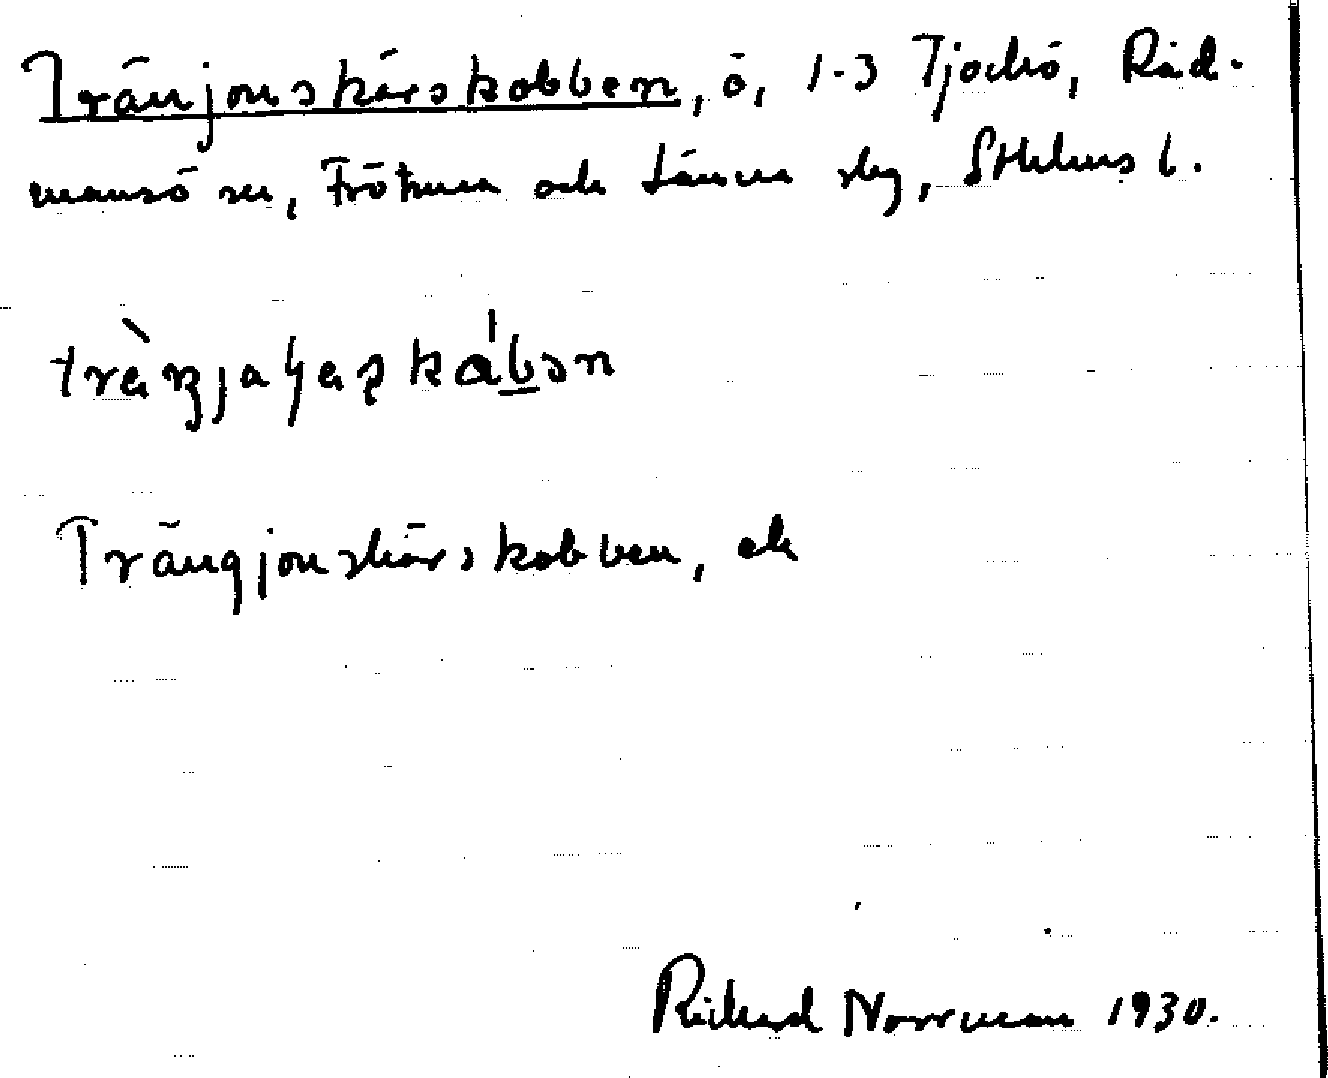 Tränjonskärskobben, ö, 1-3 Tjockö, Råd-
mansö sn, Frötuna och Länna skg, Sthlms l.
Trängjonskärskobben, ek
Rickard Norrman 1930.